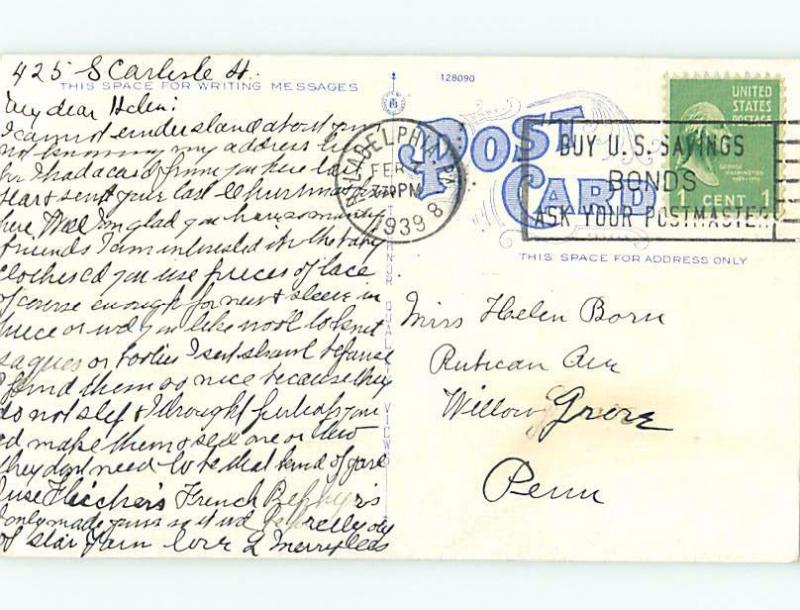 425 S Carlisle St.
THIS SPACE FOR WRITING MESSAGES
My dear Helen:
I cannot understand about you
not knowing my address
for I had a card from you here last
year & sent your last
here Well I'm glad you have so many
friends I am interested in the baby
clothes cd you use pieces of lace
of course enough for & sleeve in
piece or wd you like wool to knit
sacques or booties I sent shawl because
I find them so nice because they
do not slip & I thought perhaps you
cd make them & sell one or two
they don't need to be that kind of yarn
I use Fleisher's French Zephyrs
I only made yours so it wd be
of star yarn love
128090
POST CARD
PHILADELPHIA, PA.
FEB
7 30 PM
1939
8
BUY U.S. SAVINGS
BONDS
ASK YOUR POSTMASTER
UNITED
STATES
POSTAGE
GEORGE
WASHINGTON
1 CENT 1
THIS SPACE FOR ADDRESS ONLY
Miss Helen Born
Rubican Ave
Willow Grove
Penn